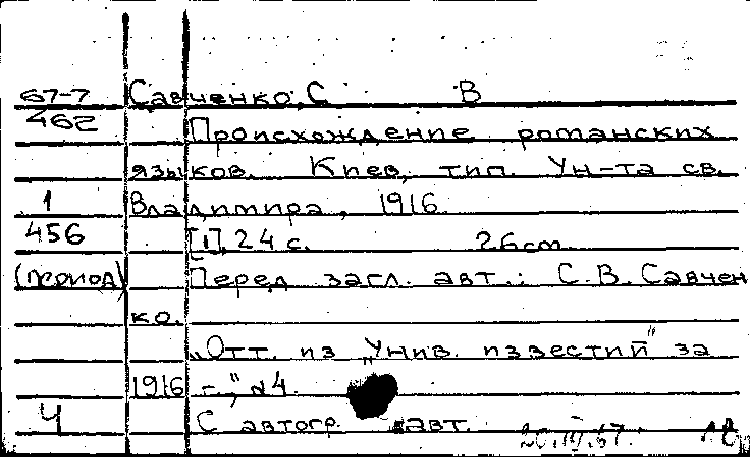 67-7 Савченко, С В
462 Происхождение романских
языков. Киев, тип. Ун-та св.
1 Владимира, 1916.
456 [1], 24 с. 26 см.
(период) Перед загл. авт.: С.В. Савчен
ко.
„Отт. из „Унив. известий" за
1916 г.", №4.
4 С автогр. авт. 20.III.67.